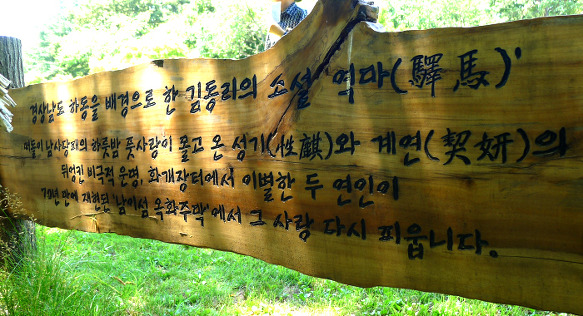 경상남도 하동을 배경으로 한 김동리의 소설 '역마(驛馬)'
떠돌이 남사당패의 하룻밤 풋사랑이 몰고 온 성기(性麒)와 계연(契妍)의
뒤엉킨 비극적 운명, 화개장터에서 이별한 두 연인이
70년 만에 재현된 '남이섬 옥화주막'에서 그 사랑 다시 피웁니다.